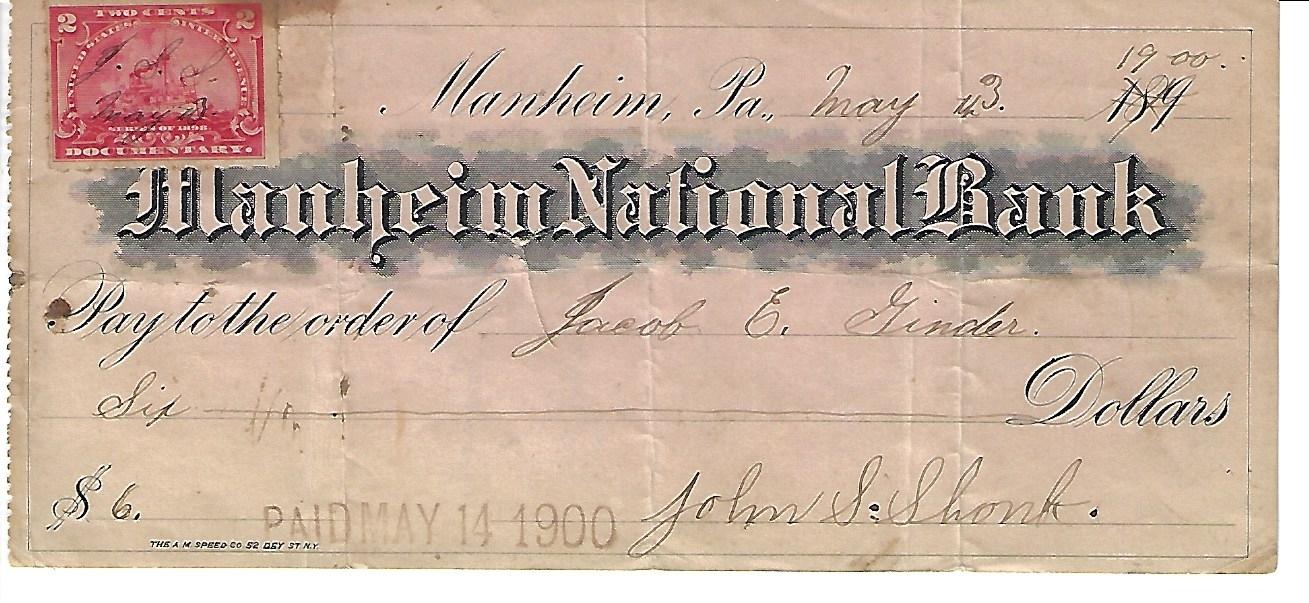 2 TWO CENTS 2
UNITED STATES INTER. REVENUE
J. S. S.
May
SERIES OF 1898
DOCUMENTARY.
1900.
Manheim, Pa., May 3. 189
Manheim National Bank
Pay to the order of Jacob E. Ginder.
Six Dollars
$ 6. John S. Shonk.
PAID MAY 14 1900
THE A.M. SPEED CO 52 DEY ST N.Y.